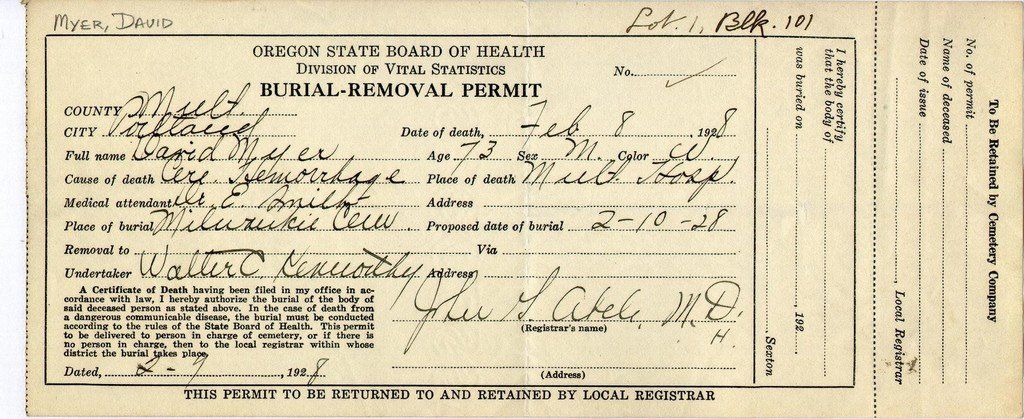 MYER, DAVID
Lot. 1, Blk. 101
OREGON STATE BOARD OF HEALTH
DIVISION OF VITAL STATISTICS
No.
BURIAL-REMOVAL PERMIT
COUNTY Mult
CITY Portland Date of death, Feb 8, 1928
Full name David Myer Age 73 Sex M. Color W.
Cause of death Cere. Hemorrhage Place of death Mult. Hosp.
Medical attendant Dr. E. Smith Address
Place of burial Milwaukie Cem. Proposed date of burial 2-10-28
Removal to Via
Undertaker Walter C. Kenworthy Address
A Certificate of Death having been filed in my office in ac-
cordance with law, I hereby authorize the burial of the body of
said deceased person as stated above. In the case of death from
a dangerous communicable disease, the burial must be conducted
according to the rules of the State Board of Health. This permit
to be delivered to person in charge of cemetery, or if there is
no person in charge, then to the local registrar within whose
district the burial takes place.
John G. Abele, M.D.
(Registrar's name)
H.
Dated, 2-9, 1928
(Address)
THIS PERMIT TO BE RETURNED TO AND RETAINED BY LOCAL REGISTRAR
I hereby certify
that the body of
was buried on 192
Sexton
To Be Retained by Cemetery Company
No. of permit
Name of deceased
Date of issue
Local Registrar